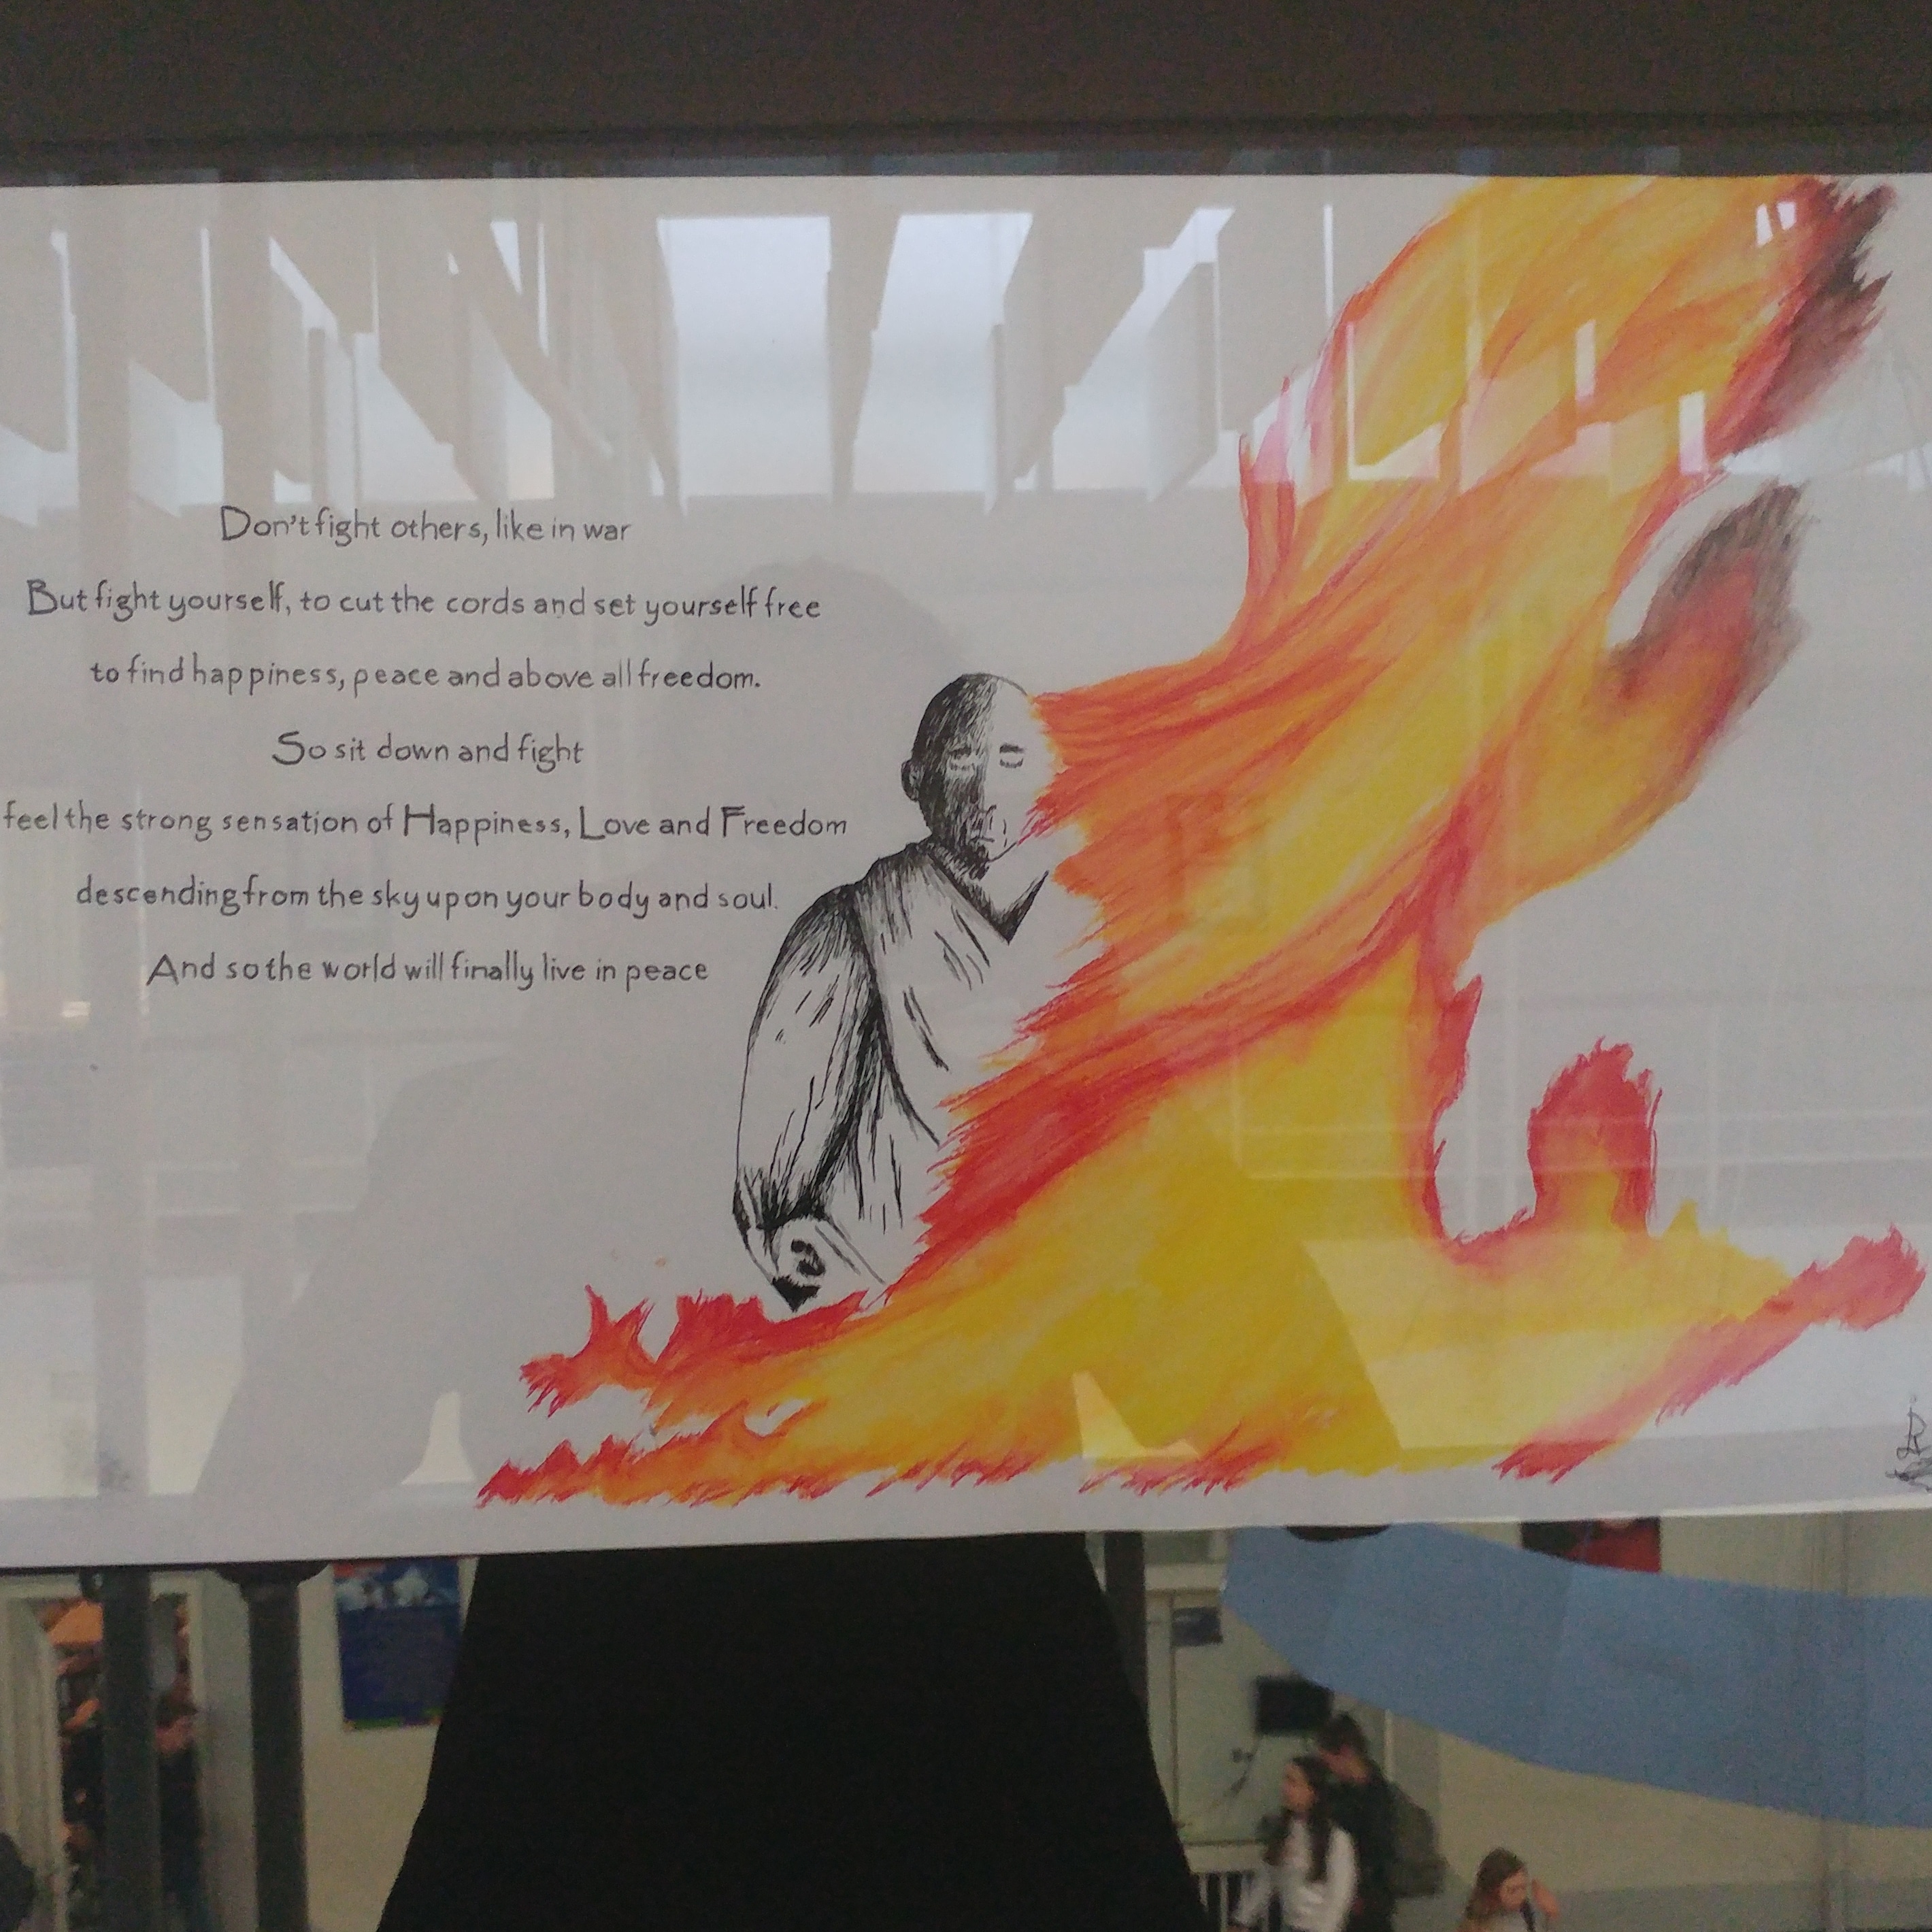 Don't fight others, like in war
But fight yourself, to cut the cords and set yourself free
to find happiness, peace and above all freedom.
So sit down and fight
feel the strong sensation of Happiness, Love and Freedom
descending from the sky upon your body and soul.
And so the world will finally live in peace